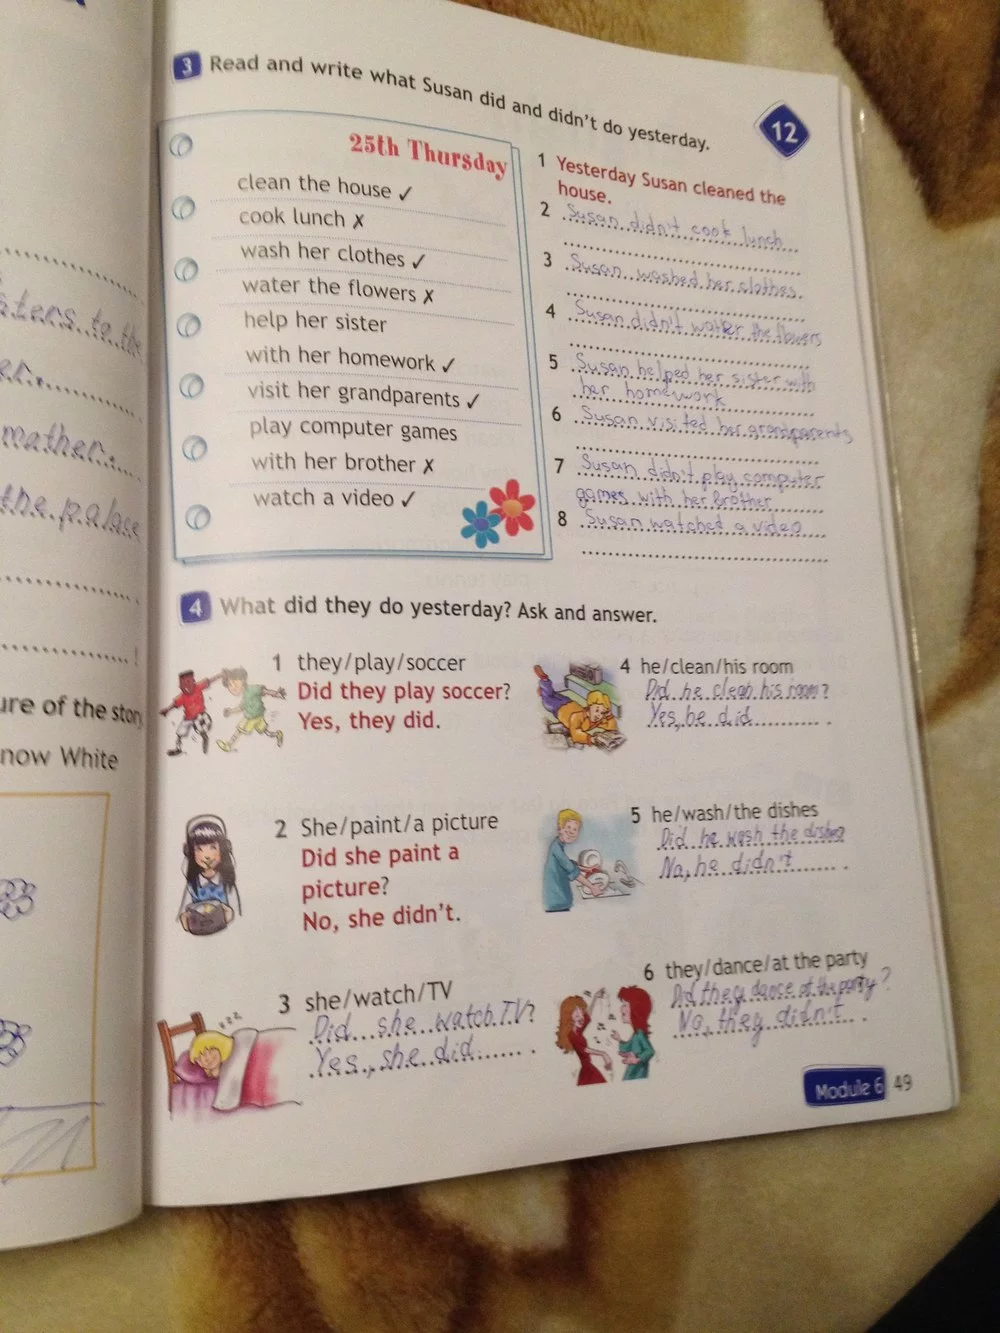 sters to the
mather
the palace
!
ure of the story
now White
3 Read and write what Susan did and didn't do yesterday.
12
25th Thursday
clean the house ✓
cook lunch ✗
wash her clothes ✓
water the flowers ✗
help her sister
with her homework ✓
visit her grandparents ✓
play computer games
with her brother ✗
watch a video ✓
1 Yesterday Susan cleaned the
house.
2 Susan didn't cook lunch
3 Susan washed her clothes.
4 Susan didn't water the flowers
5 Susan helped her sister with
her homework
6 Susan visited her grandparents
7 Susan didn't play computer
games with her brother
8 Susan watched a video
4 What did they do yesterday? Ask and answer.
1 they/play/soccer
Did they play soccer?
Yes, they did.
2 She/paint/a picture
Did she paint a
picture?
No, she didn't.
3 she/watch/TV
Did she watch TV?
Yes, she did .
zzz
4 he/clean/his room
Did he clean his room?
Yes, he did .
5 he/wash/the dishes
Did he wash the dishes?
No, he didn't .
6 they/dance/at the party
Did they dance at the party?
No, they didn't .
Module 6 49